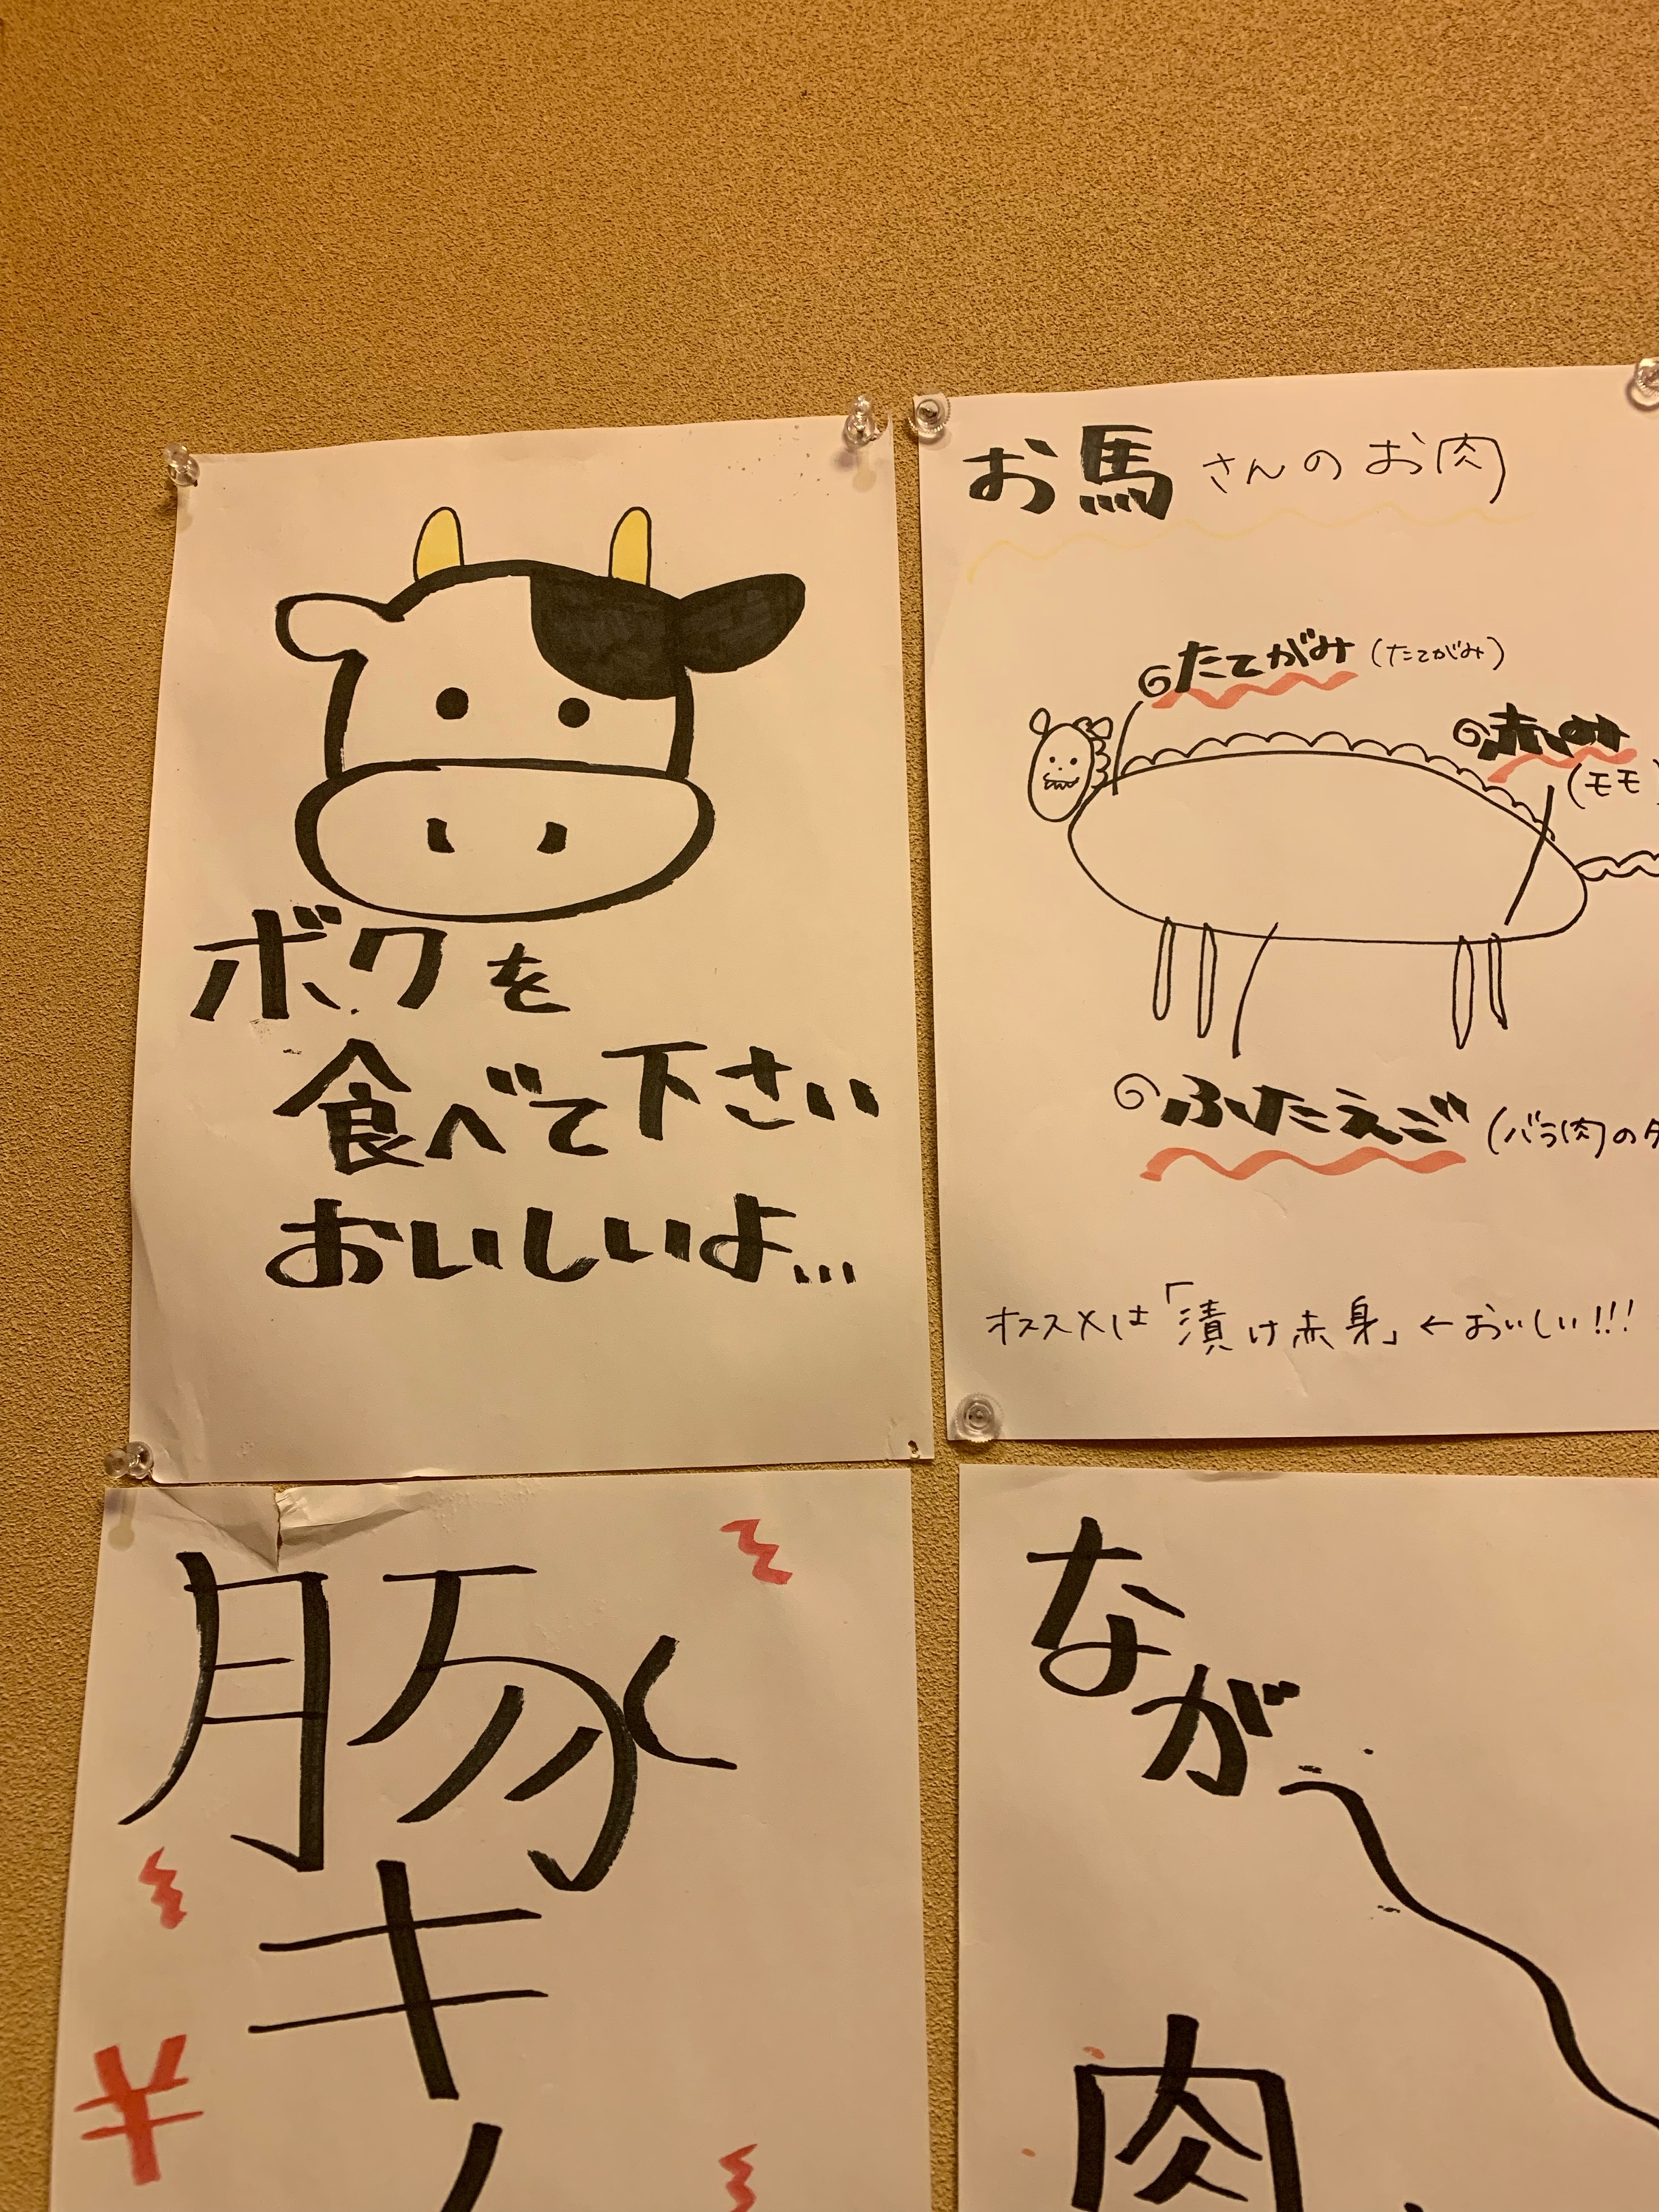 ボクを
食べて下さい
おいしいよ...
お馬さんのお肉
たてがみ(たてがみ)
(モモ)
ふたえご(バラ肉の
オススメは「漬け赤身」←おいしい!!!
豚
キ
¥
なが
肉